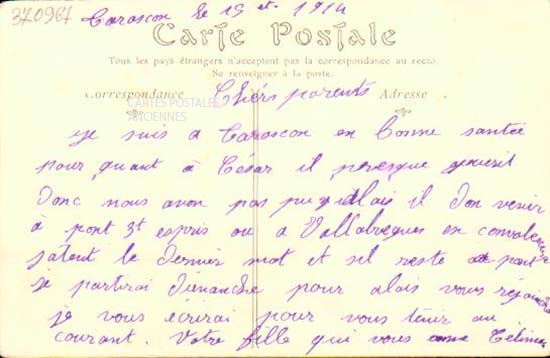 370967
Tarascon le 15 et 1914
Carte Postale
Tous les pays étrangers n'acceptent pas la correspondance au recto.
Se renseigner à la poste.
Correspondance Adresse
CARTES POSTALES
ANCIENNES
Chérs parents
Je suis a Taroscon en bonne santée
pour quant à César il presque
Donc nous avon pas pu il don venir
à pont St espris ou a Vallabregues en
le dernier mot et sil reste pont
je partirai dimanche pour alais vous rejoindre
je vous écrirai pour vous tenir au
courant. Votre fille qui vous aime